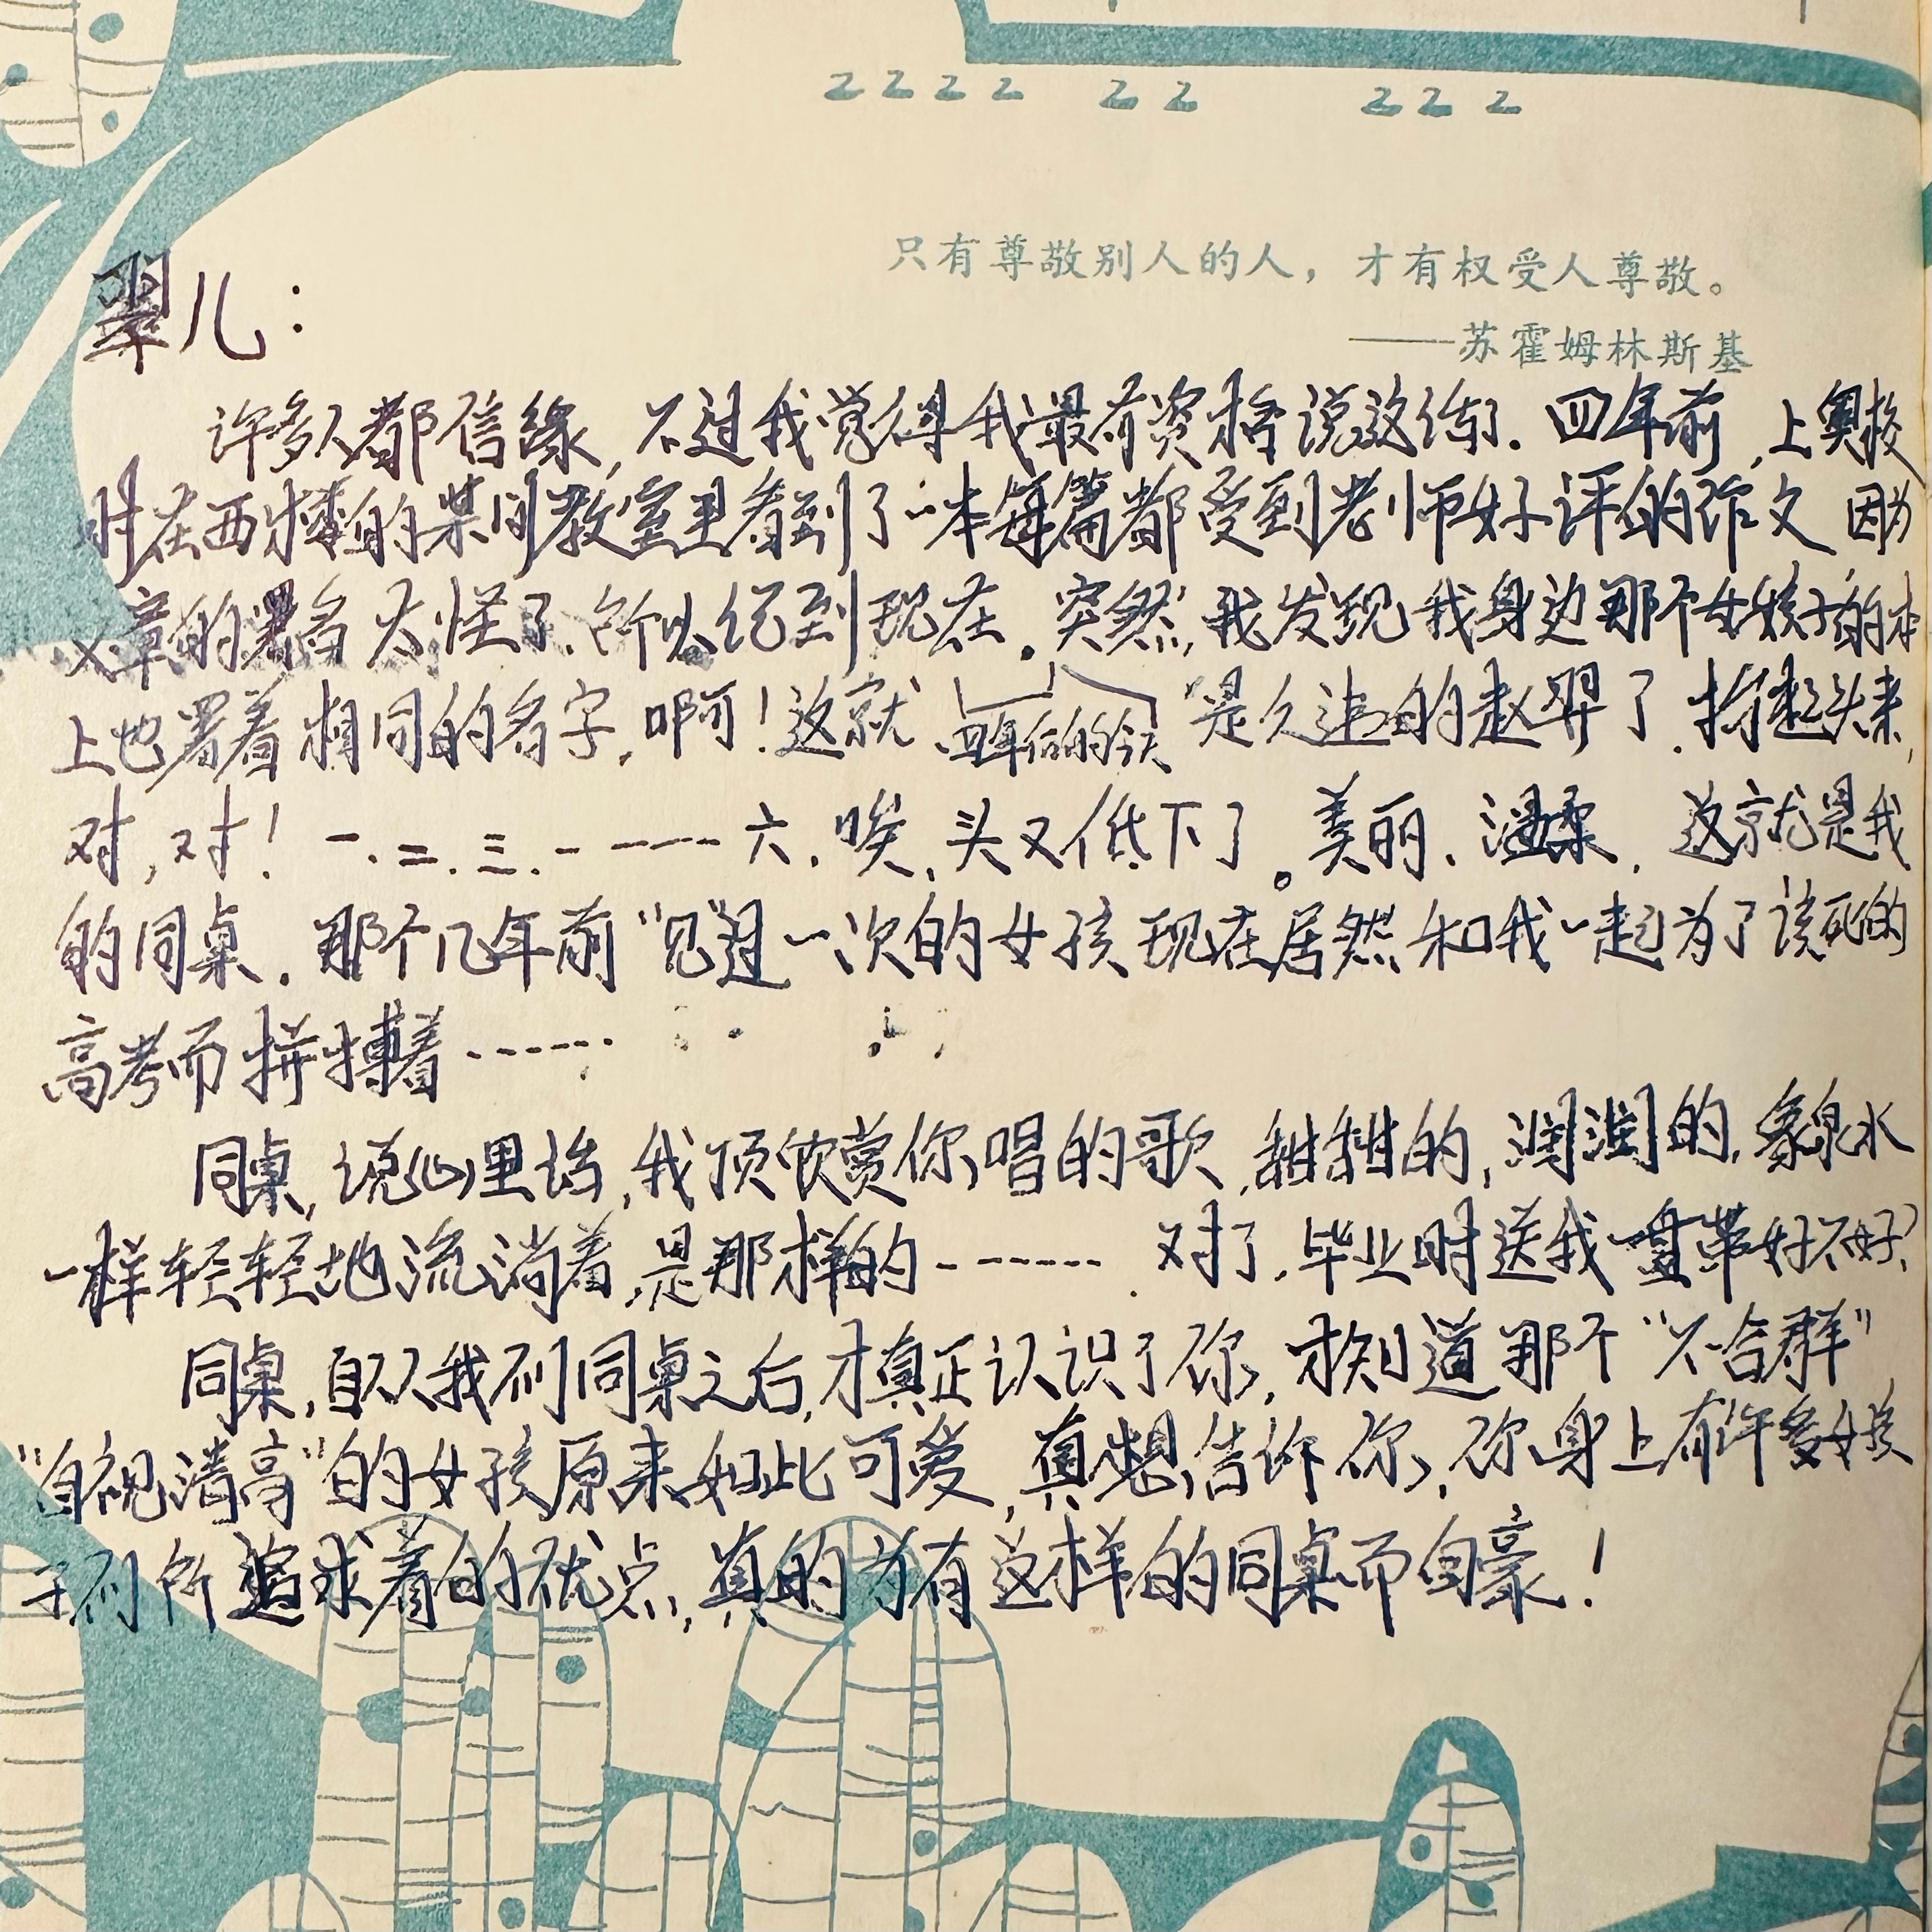 2222 22 222
只有尊敬别人的人，才有权受人尊敬。
——苏霍姆林斯基
儿：
许多人都信缘，不过我觉得我最有资格说这话了．四年前，上奥校
时在西楼的某间教室里看到了一本每篇都受到老师好评的作文，因为
文章的署名太怪了、所以记到现在．突然，我发现我身边那个女孩子的本
上也署着相同的名字，啊！这就 四年后的今天 是久违的赵羿了．抬起头来，
对，对！一．二．三．------六．唉、头又低下了。美丽、温柔，这就是我
的同桌．那个几年前“见”过一次的女孩现在居然和我一起为了该死的
高考而拼搏着------
同桌，说心里话，我顶欣赏你唱的歌，甜甜的，润润的，象泉水
一样轻轻地流淌着，是那样的------ 对了．毕业时送我一盘带好不好？
同桌，自从我们同桌之后，才真正认识了你，才知道那个“不合群”
“自视清高”的女孩原来如此可爱，真想告诉你，你身上有许多女孩
子们所追求着的优点，真的为有这样的同桌而自豪！